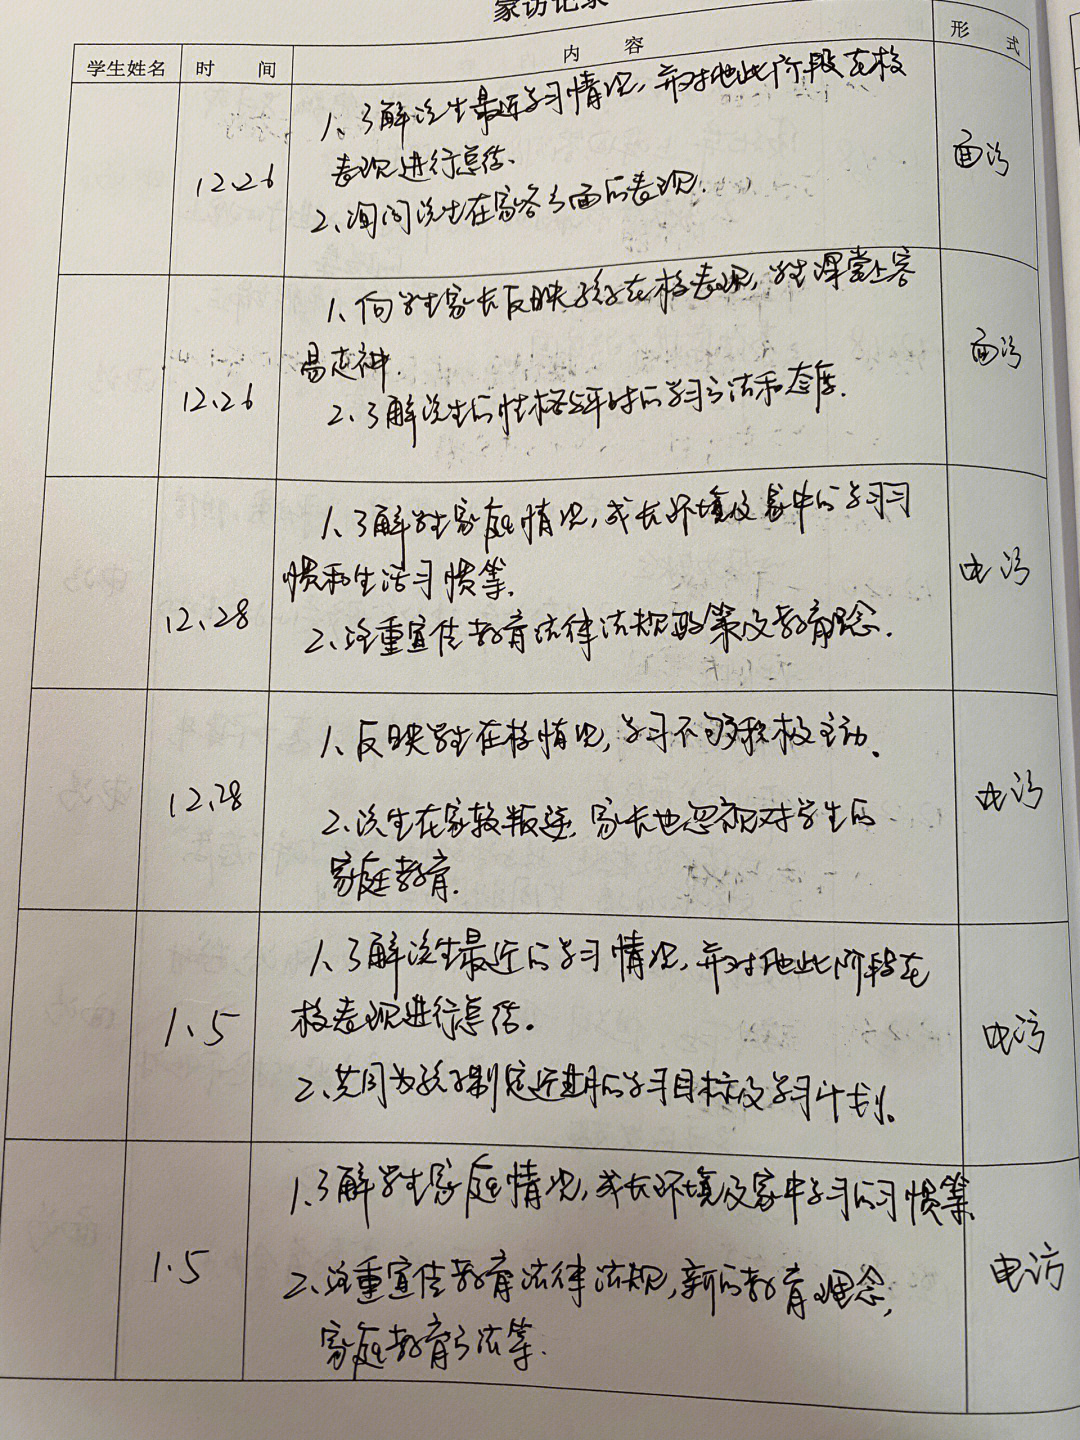 家访记录
学生姓名 时 间 内 容 形 式
1、了解该生最近学习情况，并对他此阶段在校
表现进行总结.
12.26 面访
2、询问该生在家各方面的表现.
1、向学生家长反映孩子在校表现，学生课堂上容
易走神.
12.26 面访
2、了解该生的性格与平时的学习方法和态度.
1、了解学生家庭情况，成长环境及家中的学习习
惯和生活习惯等.
12、28 电访
2、注重宣传教育法律法规政策及教育理念.
1、反映学生在校情况，学习不够积极主动、
12.28 电访
2、该生在家较叛逆，家长也忽视对学生的
家庭教育.
1、了解该生最近的学习情况，并对他此阶段在
校表现进行总结。
1、5 电访
2、共同为孩子制定近期的学习目标及学习计划。
1、了解学生家庭情况，成长环境及家中学习的习惯等.
1.5 电访
2、注重宣传教育法律法规，新的教育理念，
家庭教育方法等.